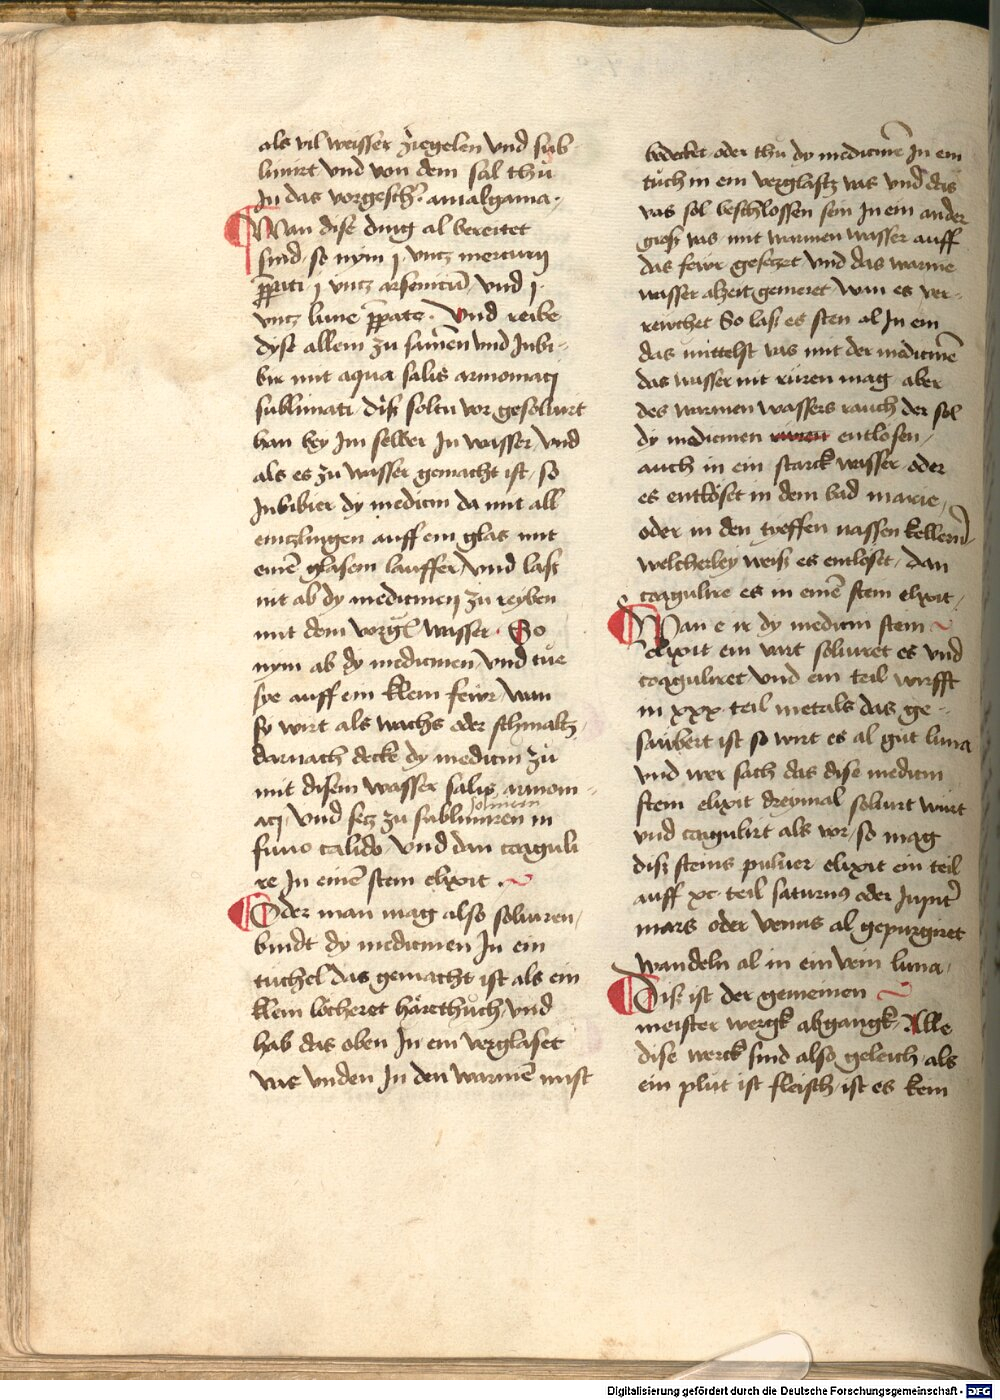 als vil weisser ziegelen vnd sub
limirt vnd von dem sal thů
In das vorgesch̄· amalgama·
Wan dise ding al bereitet
sind so nym j vntz mercurij
p̄parati j vntz arsenicū vnd j·
vntz lune p̄parate· Vnd reibe
dyse allem zu sam̄en vnd Inbi-
bir mit aqua salis armoniaci
sublimati dis soltu vor gesoluirt
han bey Im selber In wasser vnd
als es zu wasser gemacht ist / so
Inbibier dy medicin da mit all
eintzlingen auff ein glas mit
einē glasem lauffer / vnd lass
nit ab dy medicinen zu reyben
mit dem vorgē wasser· So
nym ab dy medicinen / vnd tue
sye auff ein klein fewr / wan
sy wirt als wachs oder schmaltz /
darnach decke dy medicin zů
mit disem wasser salis armoni-
aci / vnd setz zu sublimiren in
solviren
fimo calido / vnd dan coaguli
re In einē stein elixit·
Oder man mag also soluiren /
bindt dy medicinen In ein
tuchel das gemacht ist als ein
klein locheret härethůch / vnd
hab das oben In ein verglaset
vas vnden In den warmē mist
bedecket oder thu dy medicinē In ein
tůch in ein verglastz vas vnd das
vas sol beschlossen sein In ein ander
gross vas mit warmen wasser auff
das fewr gesetzet vnd das warme
wasser alzeit gemeret wan es ver-
reuchet So lass es sten al In ein
das mittelst vas mit der medicinē
das wasser nit rüren mag aber
des warmen wassers rauch der sol
dy medicinen rüren entlosen /
auch in ein starck wasser oder
es entlöset in dem bad marie /
oder in den tyeffen nassen kellern
welcherley weiss es entloset / dan
coagulire es in einē stein elixit /
Wan e ir dy medicin stein
elixit ein vart soluiret es vnd
coaguliret vnd ein teil wirfft
in xxx teil metals das ge-
saubert ist so wirt es al gut luna
vnd wer sach das dise medicin
stein elixit dreymal soluirt wirt
vnd coagulirt als vor / so mag
diss steins puluer elixit ein teil
auff xc teil saturnus oder Jupiter
mars oder venus al gepurgiret
wandeln al in ein vein luna /
Diss ist der gemeinen
meister wergk abgangk· Alle
dise werck sind also geleich als
ein plut ist fleisch ist es kein
Digitalisierung gefördert durch die Deutsche Forschungsgemeinschaft - DFG